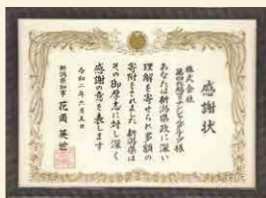 感謝状
株式会社
第四北越フィナンシャルグループ様
あなたは新潟県政に深い
理解を寄せられ多額の
寄附をされました 新潟県は
その御厚志に対し深く
感謝の意を表します
令和二年六月五日
新潟県知事 花角 英世